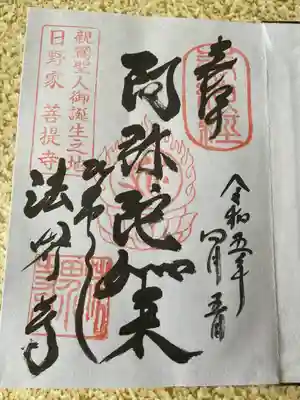 奉拝
令和五年
四月 五日
阿弥陀如来
法界寺
親鸞聖人御誕生之地
日野家 菩提寺